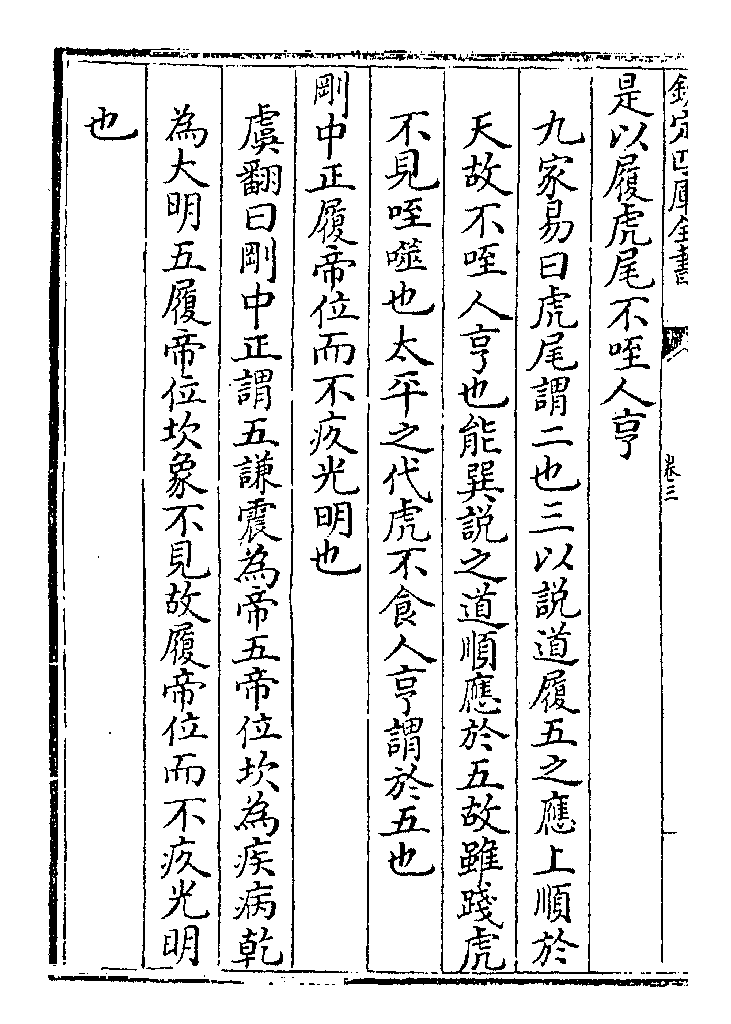 欽定四庫全書
卷三
是以履虎尾不咥人亨
九家易曰虎尾謂二也三以説道履五之應上順於
天故不咥人亨也能巽説之道順應於五故雖踐虎
不見咥噬也太平之代虎不食人亨謂於五也
剛中正履帝位而不疚光明也
虞翻曰剛中正謂五謙震為帝五帝位坎為疾病乾
為大明五履帝位坎象不見故履帝位而不疚光明
也